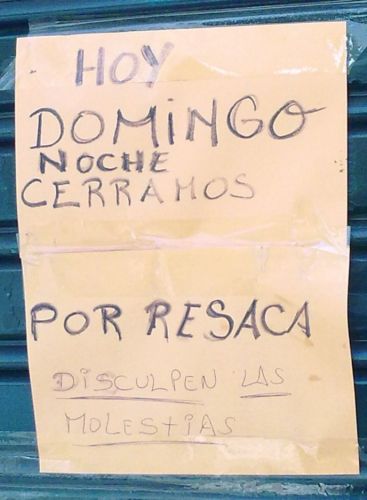 HOY
DOMiNGO
NOCHE
CERRAMOS
POR RESACA
DiSCULPEN LAS
MOLEStiAS